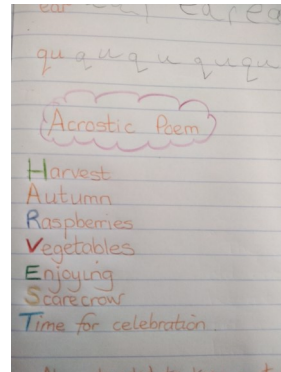 ear ear ear ea
qu q u q u q u q u
Acrostic Poem
Harvest
Autumn
Raspberries
Vegetables
Enjoying
Scarecrow
Time for celebration.